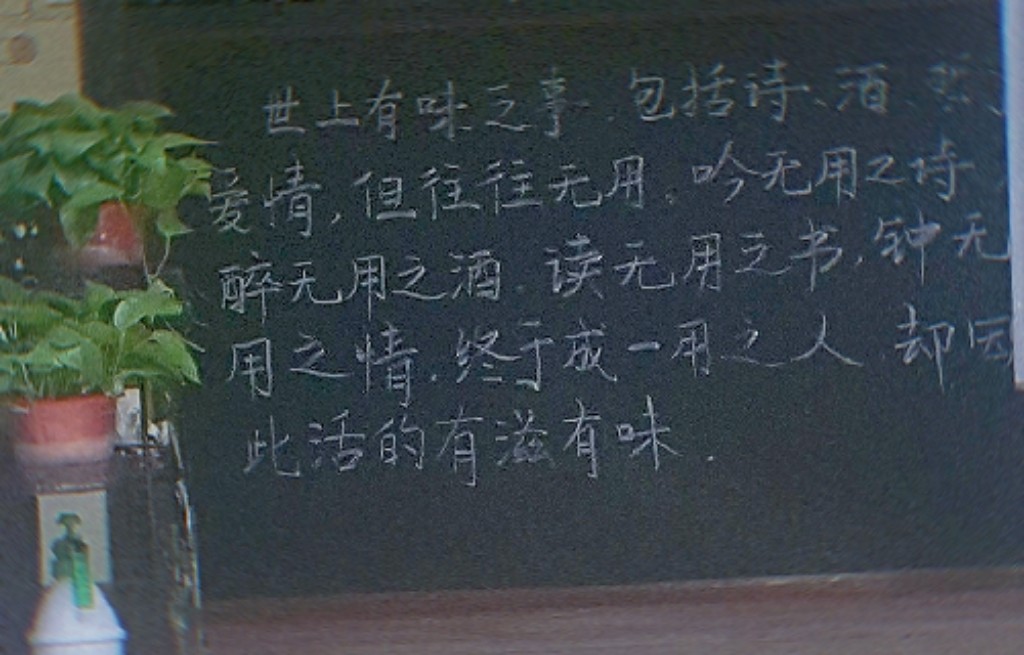 世上有味之事、包括诗、酒、哲、
爱情,但往往无用。吟无用之诗
醉无用之酒.读无用之书,钟无
用之情.终于成一用之人 却因
此活的有滋有味.